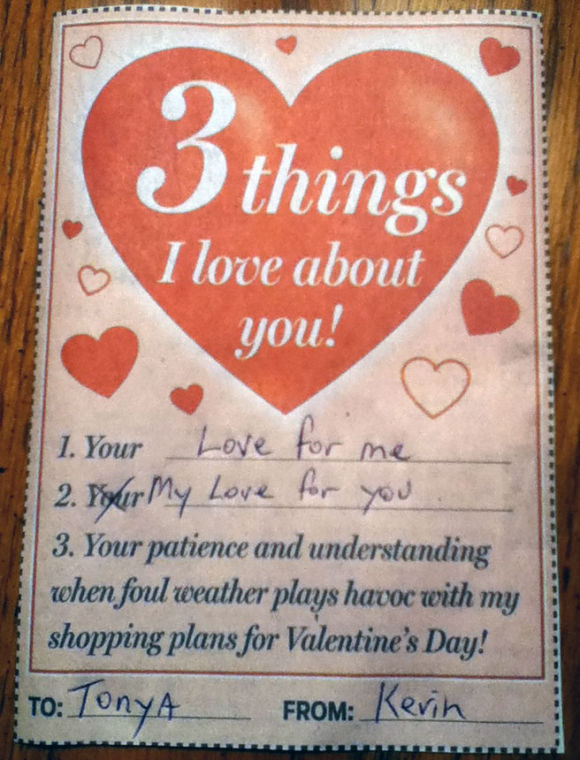 3 things
I love about
you!
1. Your Love for me
2. Your My Love for you
3. Your patience and understanding
when foul weather plays havoc with my
shopping plans for Valentine's Day!
TO: TonyA FROM: Kevin